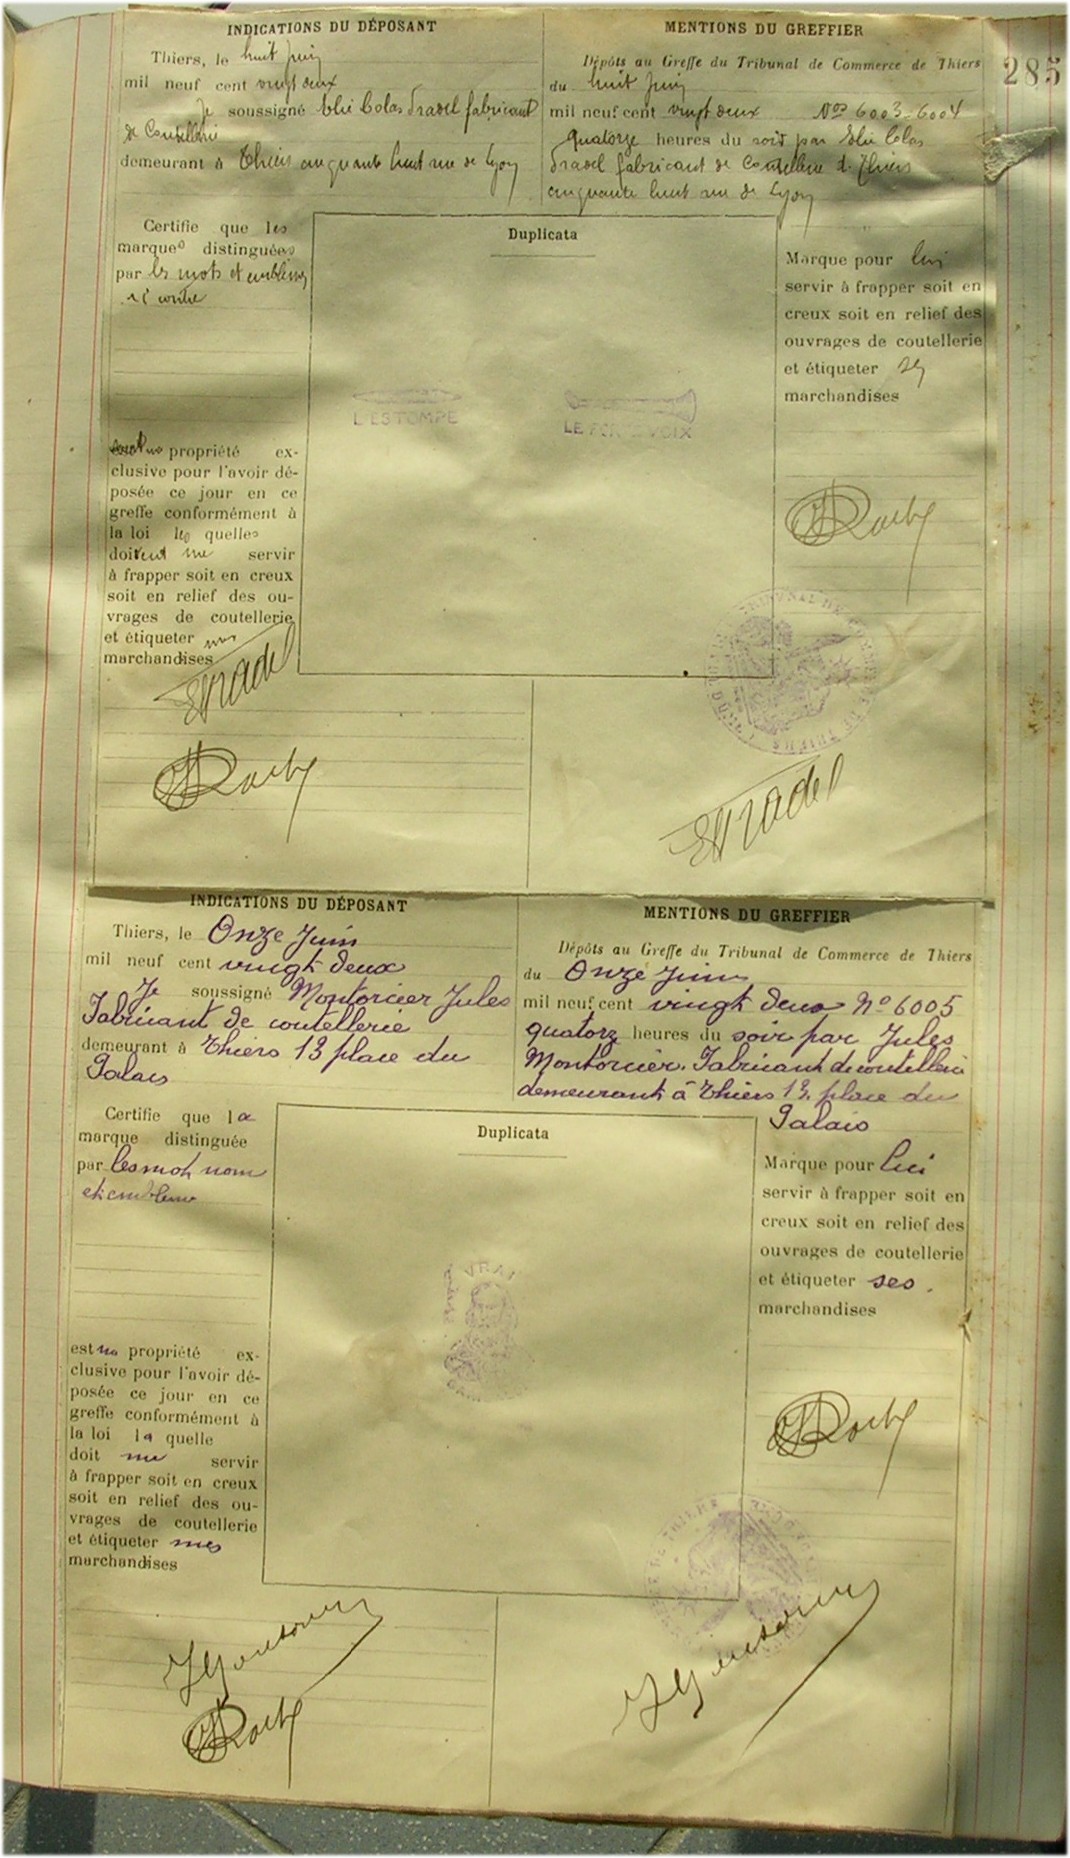 285
INDICATIONS DU DÉPOSANT
Thiers, le huit Juin
mil neuf cent vingt deux
Je soussigné Elie Colas Fradel fabricant
de Coutellerie
demeurant à Thiers cinquante huit rue de Lyon
MENTIONS DU GREFFIER
Dépôts au Greffe du Tribunal de Commerce de Thiers
du huit Juin
mil neuf cent vingt deux Nos 6003-6004
quatorze heures du soir par Elie Colas
Fradel fabricant de Coutellerie à Thiers
cinquante huit rue de Lyon
Certifie que les
marques distinguées
par les mots et emblèmes
ci contre
sont ma propriété ex-
clusive pour l'avoir dé-
posée ce jour en ce
greffe conformément à
la loi les quelles
doivent me servir
à frapper soit en creux
soit en relief des ou-
vrages de coutellerie
et étiqueter mes
marchandises
Duplicata
L'ESTOMPE
LE PORTE VOIX
Marque pour lui
servir à frapper soit en
creux soit en relief des
ouvrages de coutellerie
et étiqueter ses
marchandises
TRIBUNAL DE COMMERCE DE THIERS
Fradel
Fradel
INDICATIONS DU DÉPOSANT
Thiers, le Onze Juin
mil neuf cent vingt deux
Je soussigné Montorcier Jules
Fabricant de coutellerie
demeurant à Thiers 13 place du
Palais
MENTIONS DU GREFFIER
Dépôts au Greffe du Tribunal de Commerce de Thiers
du Onze Juin
mil neuf cent vingt deux No 6005
quatorz heures du soir par Jules
Montorcier. Fabricant de coutellerie
demeurant à Thiers 13. place du
Palais
Certifie que la
marque distinguée
par les mots nom
et emblème
est ma propriété ex-
clusive pour l'avoir dé-
posée ce jour en ce
greffe conformément à
la loi la quelle
doit me servir
à frapper soit en creux
soit en relief des ou-
vrages de coutellerie
et étiqueter mes
marchandises
Duplicata
VRAI
Marque pour lui
servir à frapper soit en
creux soit en relief des
ouvrages de coutellerie
et étiqueter ses.
marchandises